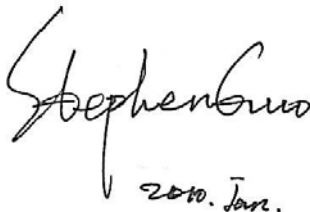 StephenGuo
2010. Jan.